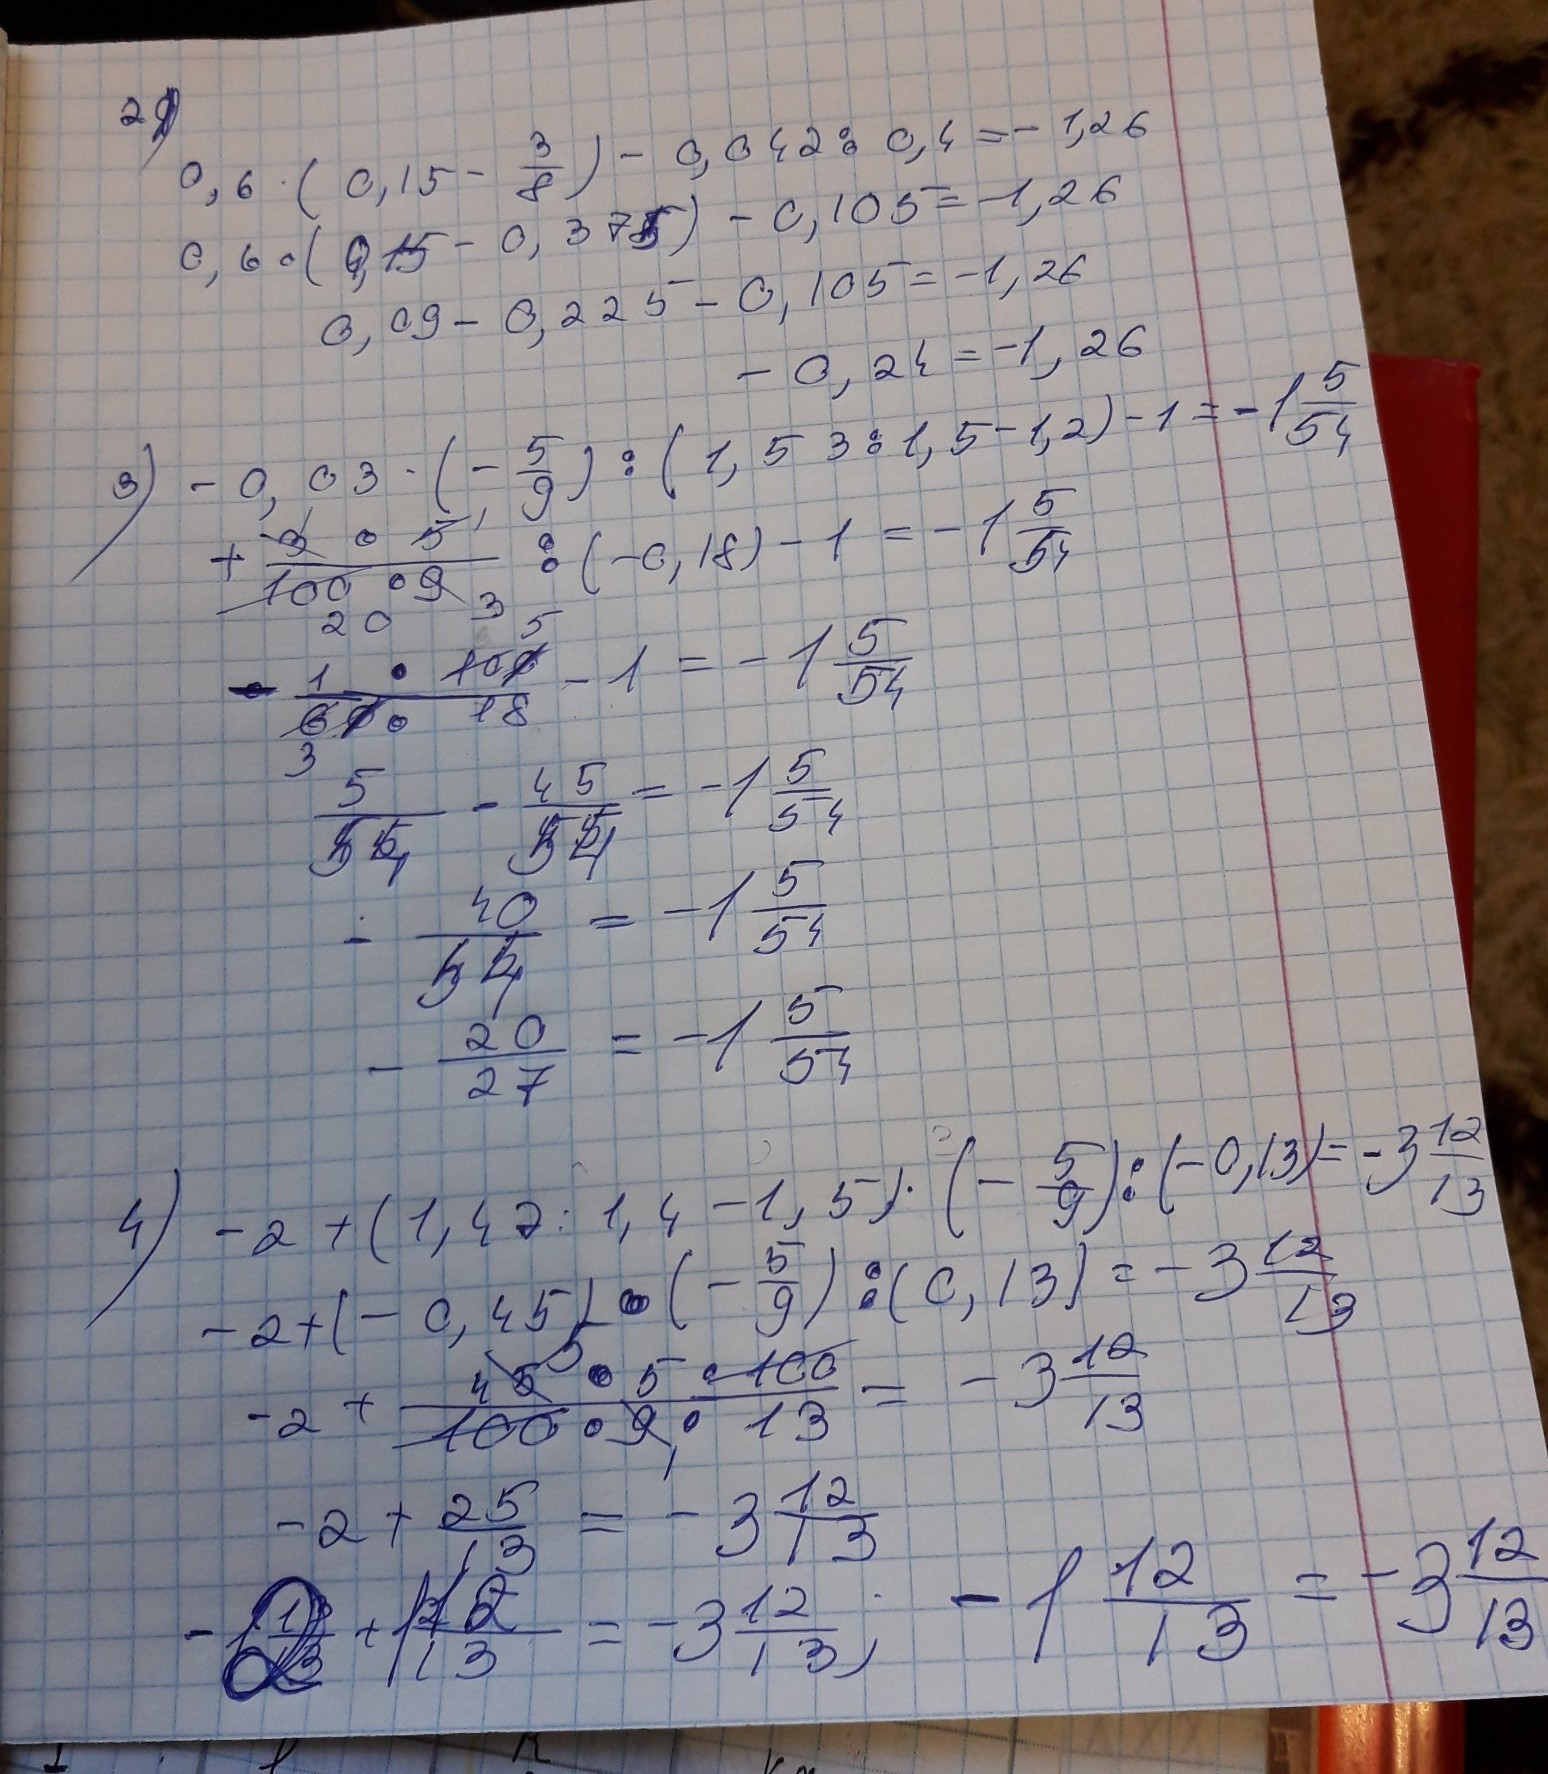 2)
0,6·(0,15 - 3/8) - 0,042:0,4 = -1,26
0,6·(0,15 - 0,375) - 0,105 = -1,26
0,09 - 0,225 - 0,105 = -1,26
-0,24 = -1,26
3) -0,03·(-5/9):(1,53:1,5-1,2)-1 = -1 5/54
+ 3·5/100·9 :(-0,18) - 1 = -1 5/54
1 1
20 3 5
- 1·100/60·18 - 1 = -1 5/54
3
5/54 - 45/54 = -1 5/54
- 40/54 = -1 5/54
- 20/27 = -1 5/54
4) -2+(1,47:1,4-1,5)·(-5/9):(-0,13) = -3 12/13
-2+(-0,45)·(-5/9):(0,13) = -3 12/13
5
-2 + 45·5·100/100·9·13 = -3 12/13
1
-2 + 25/13 = -3 12/13
+ 1 12/13 = -3 12/13; -1 12/13 = -3 12/13